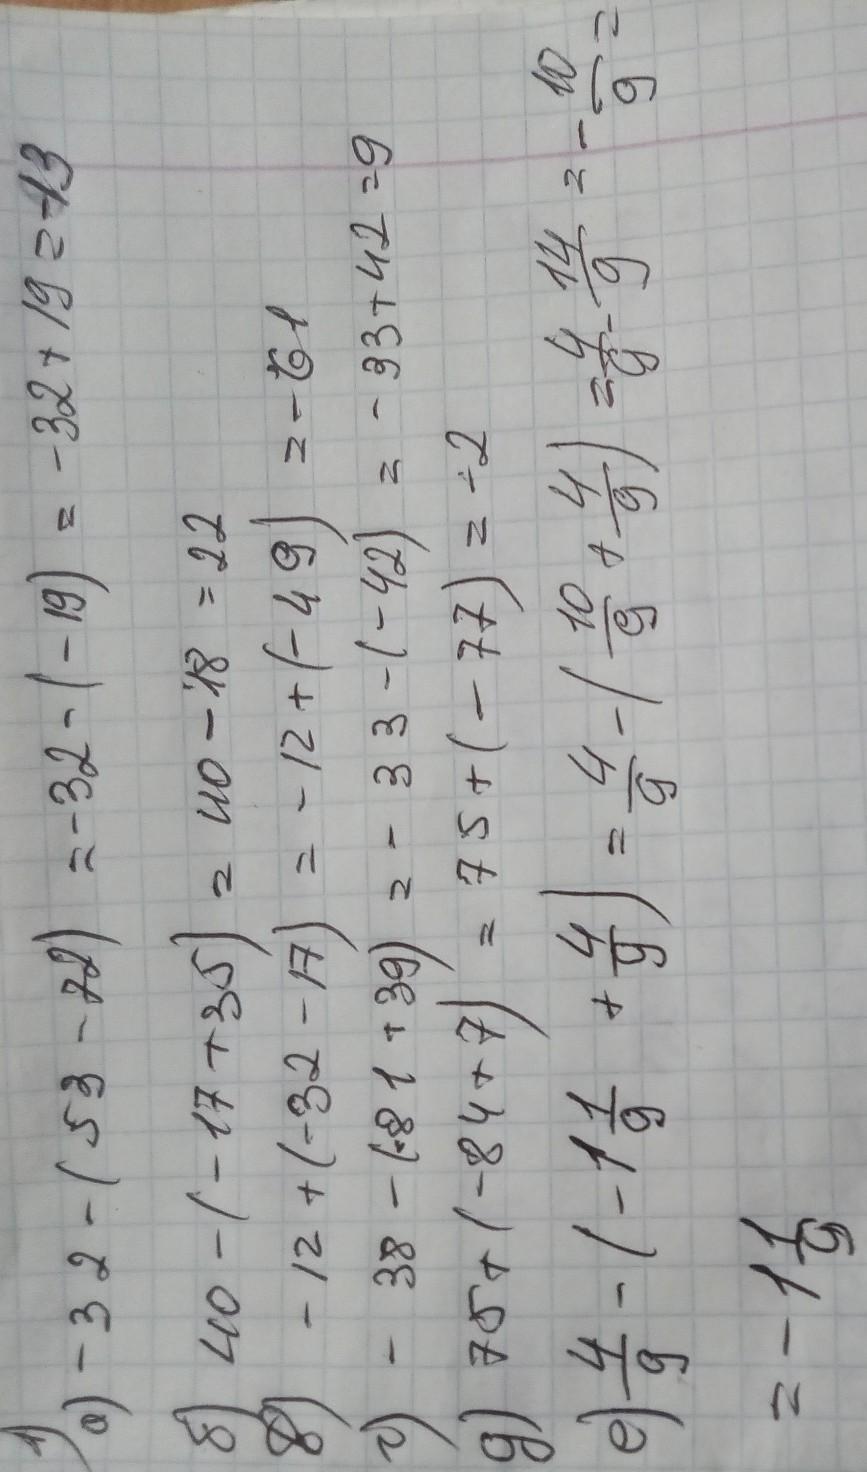 1)
а) -32-(53-72) =-32-(-19) = -32+19=-13
б) 40-(-17+35) = 40-18 =22
в) -12+(-32-17) = -12+(-49) =-61
г) - 38-(-81+39) = - 33-(-42) = -33+42=9
д) 75+(-84+7) = 75+(-77) =-2
е) 4/9 -(-1 1/9 + 4/9) = 4/9 -(10/9 + 4/9) = 4/9 - 14/9 =- 10/9 =
=-1 1/9